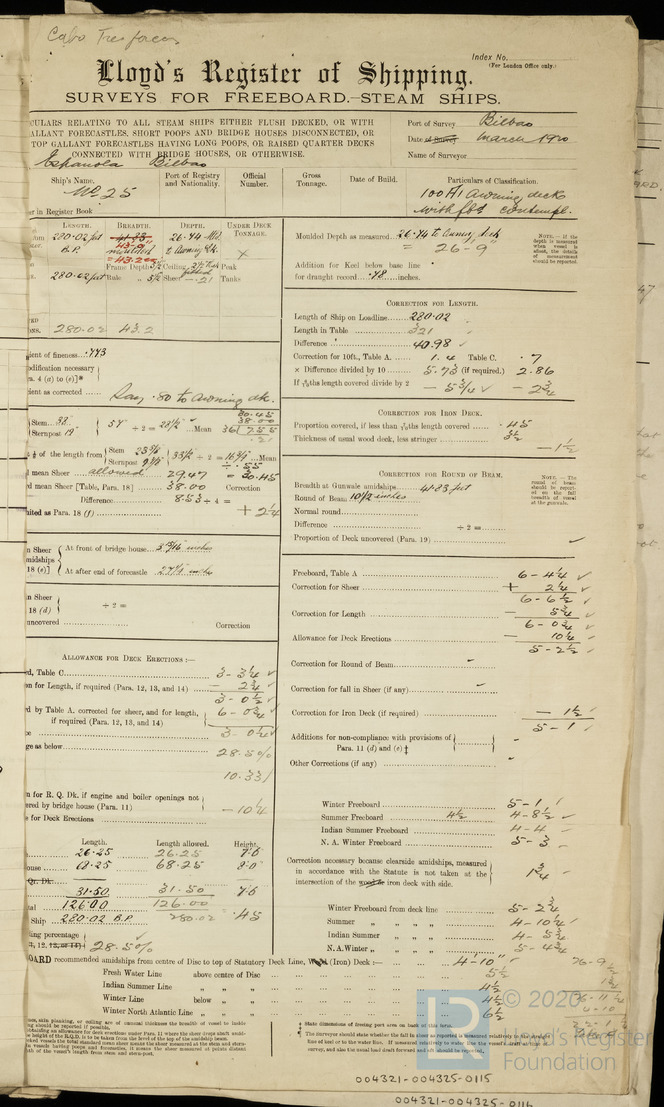 Cabo Tres forcas
Index No.
(For London Office only.)
Lloyd's Register of Shipping.
SURVEYS FOR FREEBOARD.—STEAM SHIPS.
CULARS RELATING TO ALL STEAM SHIPS EITHER FLUSH DECKED, OR WITH
ALLANT FORECASTLES, SHORT POOPS AND BRIDGE HOUSES DISCONNECTED, OR
TOP GALLANT FORECASTLES HAVING LONG POOPS, OR RAISED QUARTER DECKS
CONNECTED WITH BRIDGE HOUSES, OR OTHERWISE.
Port of Survey Bilbao
Date of Survey March 1920
Name of Surveyor
Española Bilbao
Ship's Name. Port of Registry and Nationality. Official Number. Gross Tonnage. Date of Build. Particulars of Classification.
No 25
100 A1 Awning deck
with fbd contempl.
er in Register Book
LENGTH. BREADTH. DEPTH. UNDER DECK TONNAGE.
280.02 feet 26.74 Mld
B.P. to Awng dk.
43.2
Frame Depth Ceiling Peak
280.02 feet Rule Sheer .21 Tanks
280.02 43.2
Moulded Depth as measured 26.74 to Awng deck
= 26-9"
Addition for Keel below base line
for draught record .48 inches.
NOTE.—if the depth is measured when vessel is afloat, the details of measurement should be reported.
CORRECTION FOR LENGTH.
Length of Ship on Loadline 280.02
Length in Table 321
Difference 40.98
Correction for 10ft., Table A. 1.4 Table C. .7
× Difference divided by 10 5.73 (if required.) 2.86
If 6/10ths length covered divide by 2 — 5¾ — 2¾
ient of fineness .773
odification necessary
ra. 4 (a) to (e)]*
ient as corrected Say .80 to Awning dk.
Stem 38
Sternpost 19
57 ÷ 2 = 28½ Mean
30.45
38.00
36 | 7.55
.21
of the length from Stem Sternpost 33½ ÷ 2 = 16¾ Mean
÷ .55
d mean Sheer allowed 29.47 = 30.45
d mean Sheer [Table, Para. 18] 38.00 Correction
Difference 8.53 ÷ 4 =
mited as Para. 18 (f) + 2¼
CORRECTION FOR IRON DECK.
Proportion covered, if less than 7/10ths length covered .45
Thickness of usual wood deck, less stringer 3½
— 1½
CORRECTION FOR ROUND OF BEAM.
Breadth at Gunwale amidships 41.83 feet
Round of Beam 10½ inches
Normal round
Difference ÷ 2 =
Proportion of Deck uncovered (Para. 19)
NOTE.—The round of beam should be reported on the full breadth of vessel at the gunwale.
n Sheer
midships
18 (e)]
At front of bridge house 3 15/16 inches
At after end of forecastle 27¼ inches
n Sheer
18 (d)
÷ 2 =
uncovered Correction
Freeboard, Table A 6 – 4¼
Correction for Sheer + 2¼
6 – 6½
Correction for Length — 5¾
6 – 0¾
Allowance for Deck Erections — 10¼
5 – 2½
Correction for Round of Beam
Correction for fall in Sheer (if any)
Correction for Iron Deck (if required) — 1½
5 – 1
Additions for non-compliance with provisions of
Para. 11 (d) and (e) ‡
Other Corrections (if any)
ALLOWANCE FOR DECK ERECTIONS :—
d, Table C 3 – 3¼
on for Length, if required (Para. 12, 13, and 14) – 2¾
3 – 0½
rd by Table A. corrected for sheer, and for length,
if required (Para. 12, 13, and 14) 6 – 0¾
ce 3 – 0¼
ge as below 28.5%
10.33
n for R. Q. Dk. if engine and boiler openings not
ered by bridge house (Para. 11)
e for Deck Erections – 10¼
Length. Length allowed. Height.
26.25 26.25 7.6
ouse 68.25 68.25 8.0
Qr. Dk.
31.50 31.50 7.6
tal 126.00 126.00
Ship 280.02 B.P. 280.02 .45
ding percentage
28.50%
Winter Freeboard 5 – 1
Summer Freeboard 4½ 4 – 8½
Indian Summer Freeboard 4 – 4
N. A. Winter Freeboard 5 – 3
Correction necessary because clearside amidships, measured
in accordance with the Statute is not taken at the
intersection of the wood or iron deck with side. 1¾
Winter Freeboard from deck line 5 – 2¾
Summer „ „ „ „ 4 – 10¼
Indian Summer „ „ „ 4 – 5¾
N.A. Winter „ „ „ „ 5 – 4¾
OARD recommended amidships from centre of Disc to top of Statutory Deck Line, Wood (Iron) Deck :— 4–10"
Fresh Water Line above centre of Disc 5½
Indian Summer Line „ „ 4½
Winter Line below „ „ 4½
Winter North Atlantic Line „ „ 6½
‡ State dimensions of freeing port area on back of this form.
The surveyors should state whether the fall in sheer as reported is measured relatively to the straight
line of keel or to the water line.
© 2020
Lloyd's Register
Foundation
004321-004325-0115
004321-004325-0116